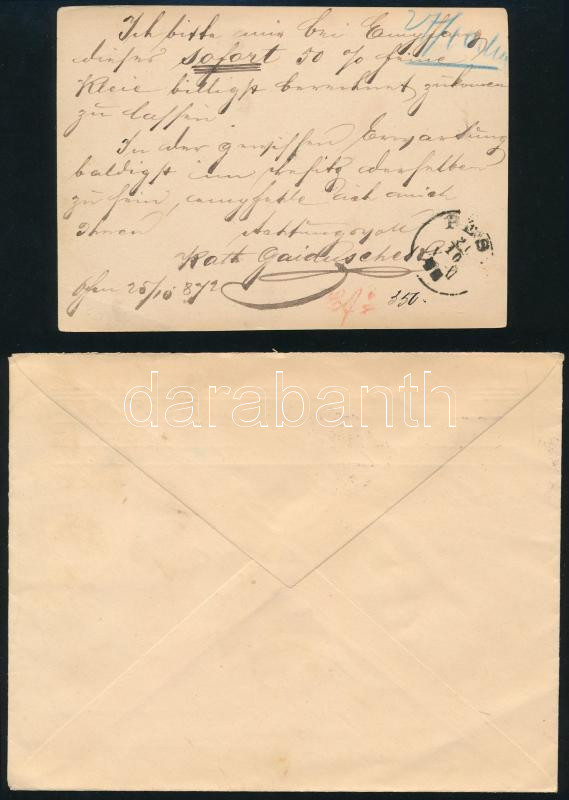 Ich bitte mir bei Empfang
dieses sofort 50 % feine
Kleie billigst berechnet zukommen
zu lassen
In der gewissen Erwartung
baldigst im Besitz derselben
zu sein, empfehle ich mich
Ihnen Achtungsvoll
Kath Gaiduschek
Ofen 25/10 872
350-
PES
darabanth